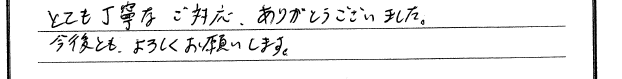 とても丁寧なご対応、ありがとうございました。
今後とも、よろしくお願いします。